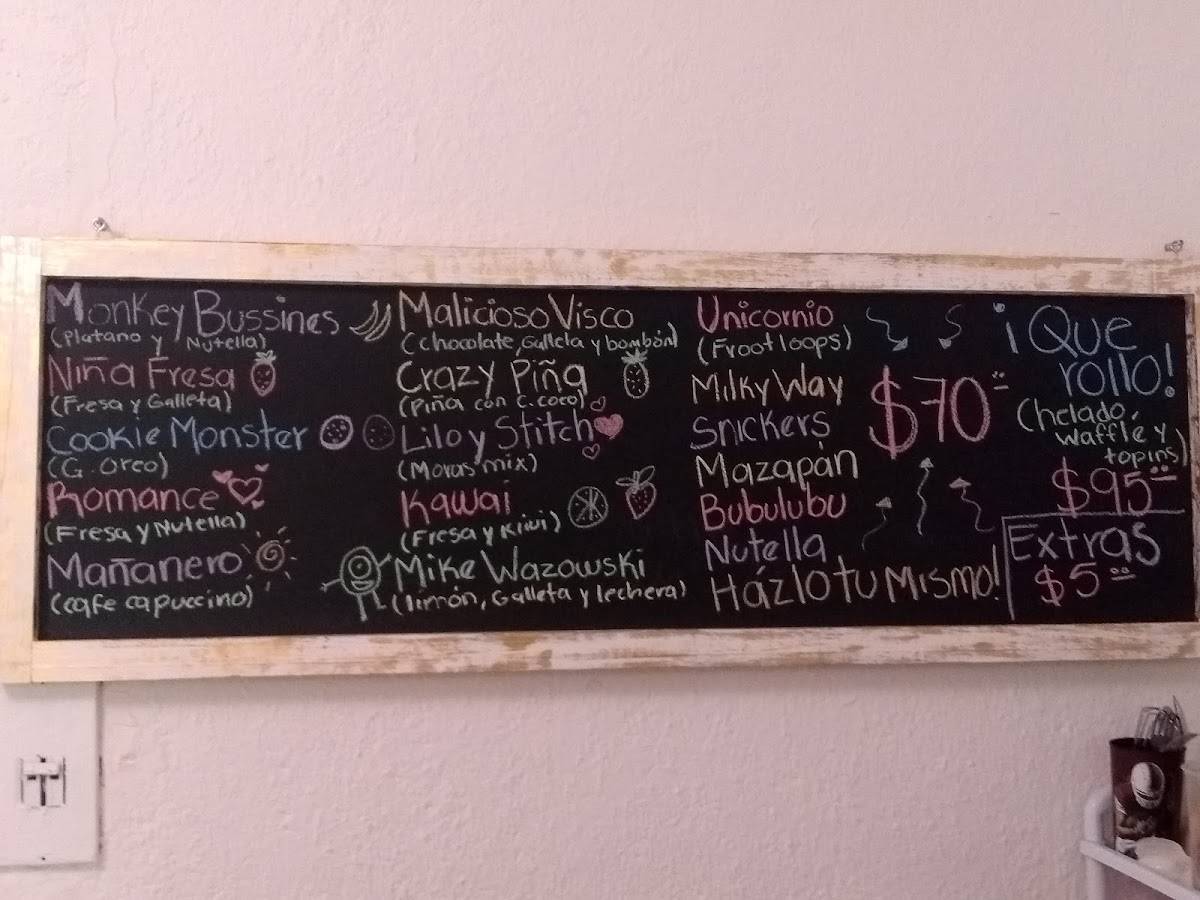 Monkey Bussines
(Platano y Nutella)
Niña Fresa
(Fresa y Galleta)
Cookie Monster
(G. Oreo)
Romance
(Fresa y Nutella)
Mañanero
(cafe capuccino)
Malicioso Visco
(chocolate, Galleta y bombón)
Crazy Piña
(Piña con c.coco)
Lilo y Stitch
(Moras mix)
Kawai
(Fresa y Kiwi)
Mike Wazowski
(limón, Galleta y lechera)
Unicornio
(Froot loops)
Milky Way
Snickers
Mazapán
Bubulubu
Nutella
Házlo tu Mismo!
$70.00
¡Que
rollo!
(helado,
waffle y
topins)
$95.00
Extras
$5.00